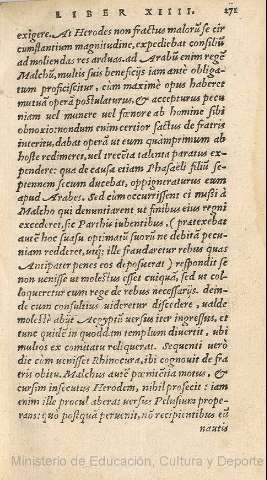 LIBER XIIII. 271
exigere. At Herodes non fractus malorũ se cir
cumstantium magnitudine, expediebat consiliũ
ad moliendas res arduas. ad Arabũ enim regẽ
Malchũ, multis suis beneficijs iam antè obliga-
tum proficiscitur, cum maximè opus haberet
mutuã operã postulaturus, & accepturus pecu
niam uel munere uel fœnore ab homine sibi
obnoxio: nondum enim certior factus de fratris
interitu, dabat operã ut eum quàmprimum ab
hoste redimeret, uel trecẽta talenta paratus ex-
pendere: qua de causa etiam Phasaeli filiũ se-
ptennem secum ducebat, oppigneraturus eum
apud Arabes. Sed eum occurrissent ei missi à
Malcho qui denuntiarent ut finibus eius regni
excederet, sic Parthis iubentibus, (prætexebat
autẽ hoc suasu optimatũ suorũ ne debitã pecu-
niam redderet, utq; ille fraudaretur rebus quas
Antipater penes eos deposuerat) respondit se
non uenisse ut molestus esset cuiquã, sed ut col-
loqueretur cum rege de rebus necessarijs. dein-
de cum consultius uideretur discedere, ualde
molestè abijt Aegyptiũ uersus iter ingressus, et
tunc quidẽ in quoddam templum diuertit, ubi
multos ex comitatu reliquerat. Sequenti uerò
die cùm uenisset Rhinocura, ibi cognouit de fra
tris obitu. Malchus autẽ pœnitẽtia motus, &
cursim insecutus Herodem, nihil profecit: iam
enim ille procul aberat uersus Pelusium prope-
rans: quò postquã peruenit, nõ recipientibus eũ
nautis
Ministerio de Educación, Cultura y Deporte